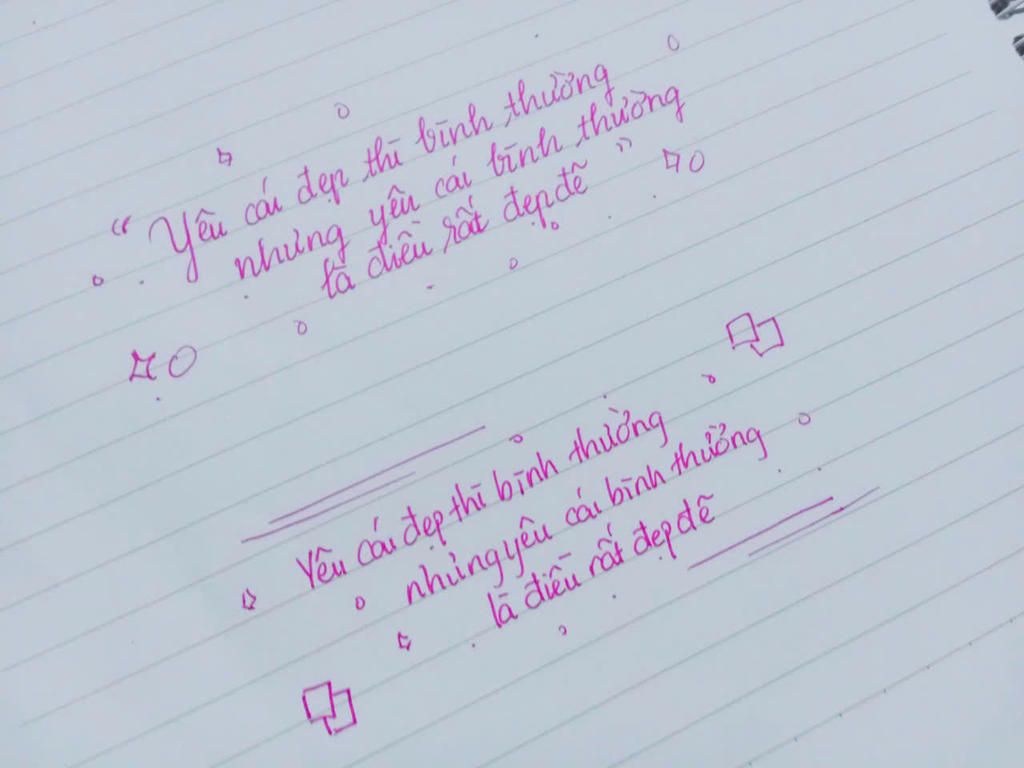 “Yêu cái đẹp thì bình thường
nhưng yêu cái bình thường
là điều rất đẹp đẽ”
Yêu cái đẹp thì bình thường
nhưng yêu cái bình thường
là điều rất đẹp đẽ